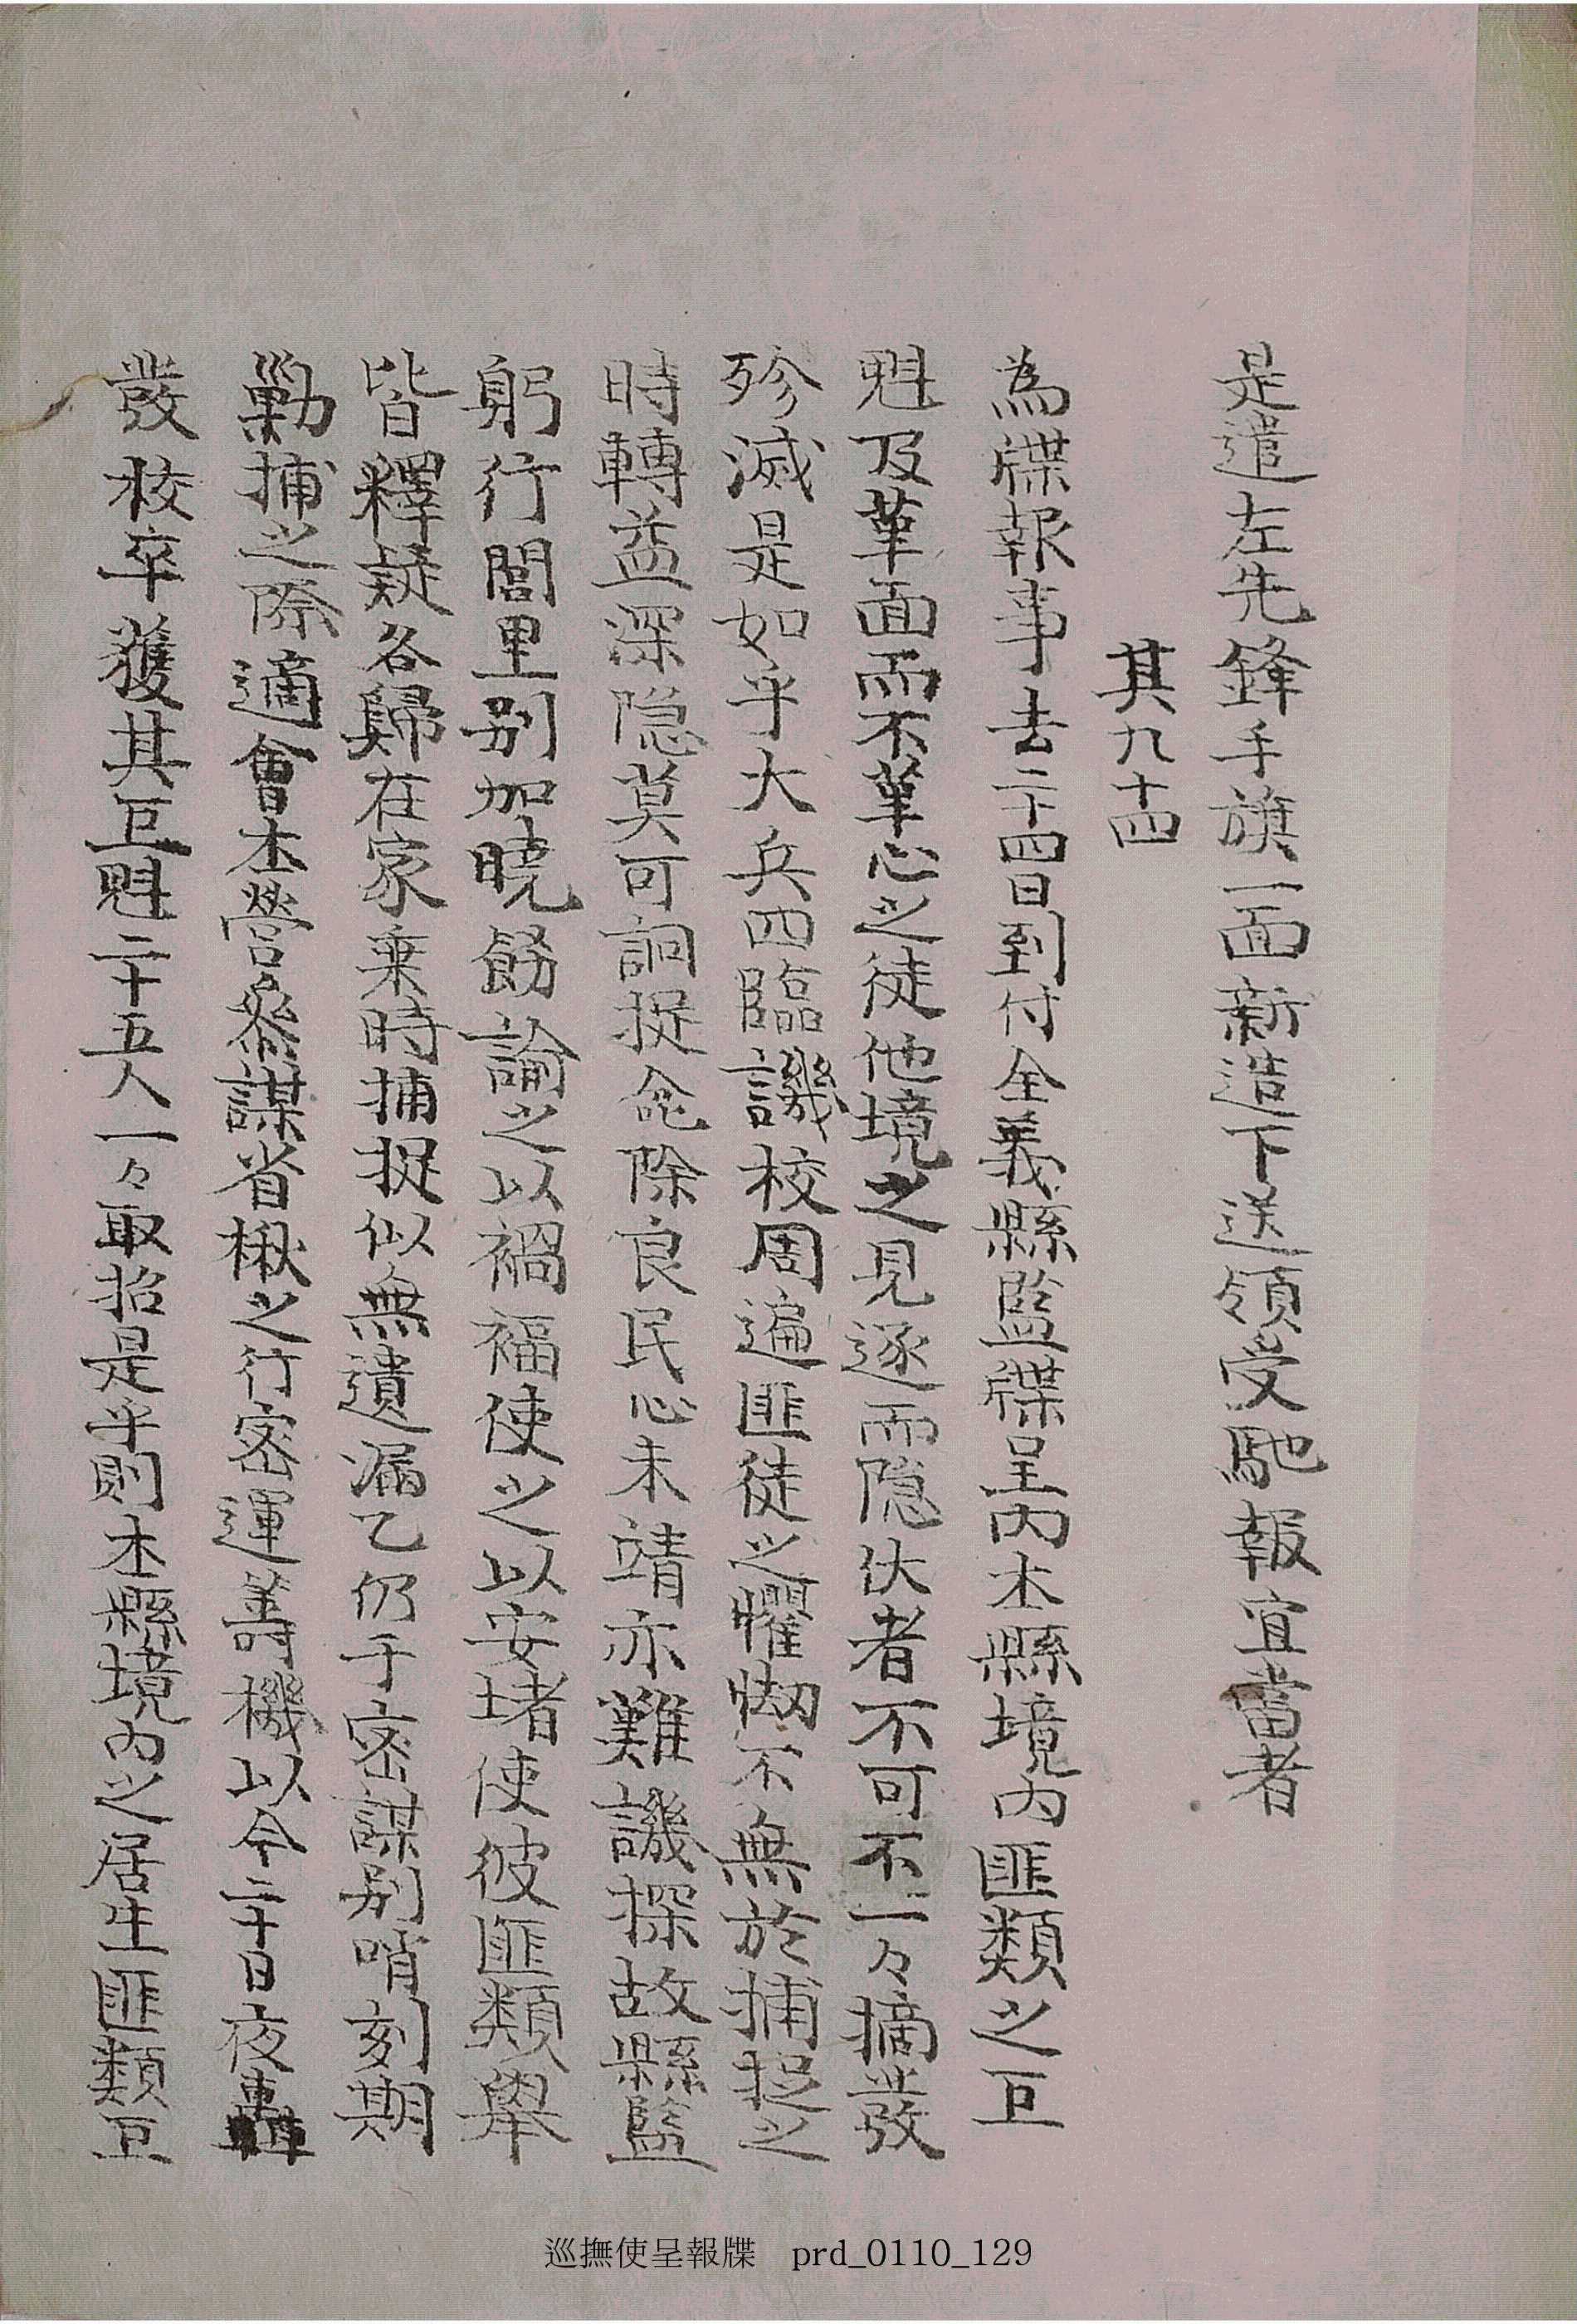 是遣左先鋒手旗一面新造下送領受馳報宜當者
其九十四
為牒報事去二十四日到付全義縣監牒呈內本縣境內匪類之巨
魁及革面而不革心之徒他境之見逐而隐伏者不可不一々摘發
殄滅是如乎大兵四臨譏校周遍匪徒之懼㥘不無於捕捉之
時轉益深隐莫可詗捉兺除良民心未靖亦難譏探故縣監
躬行閭里別加曉飭諭之以禍福使之以安堵使彼匪類擧
皆釋疑各歸在家乗時捕捉似無遺漏乙仍于密謀别哨刻期
勦捕之際適會本營叅謀省楸之行密運籌機以今二十日夜
發校卒獲其巨魁二十五人一々取招是乎則本縣境內之居生匪類巨
巡撫使呈報牒 prd_0110_129